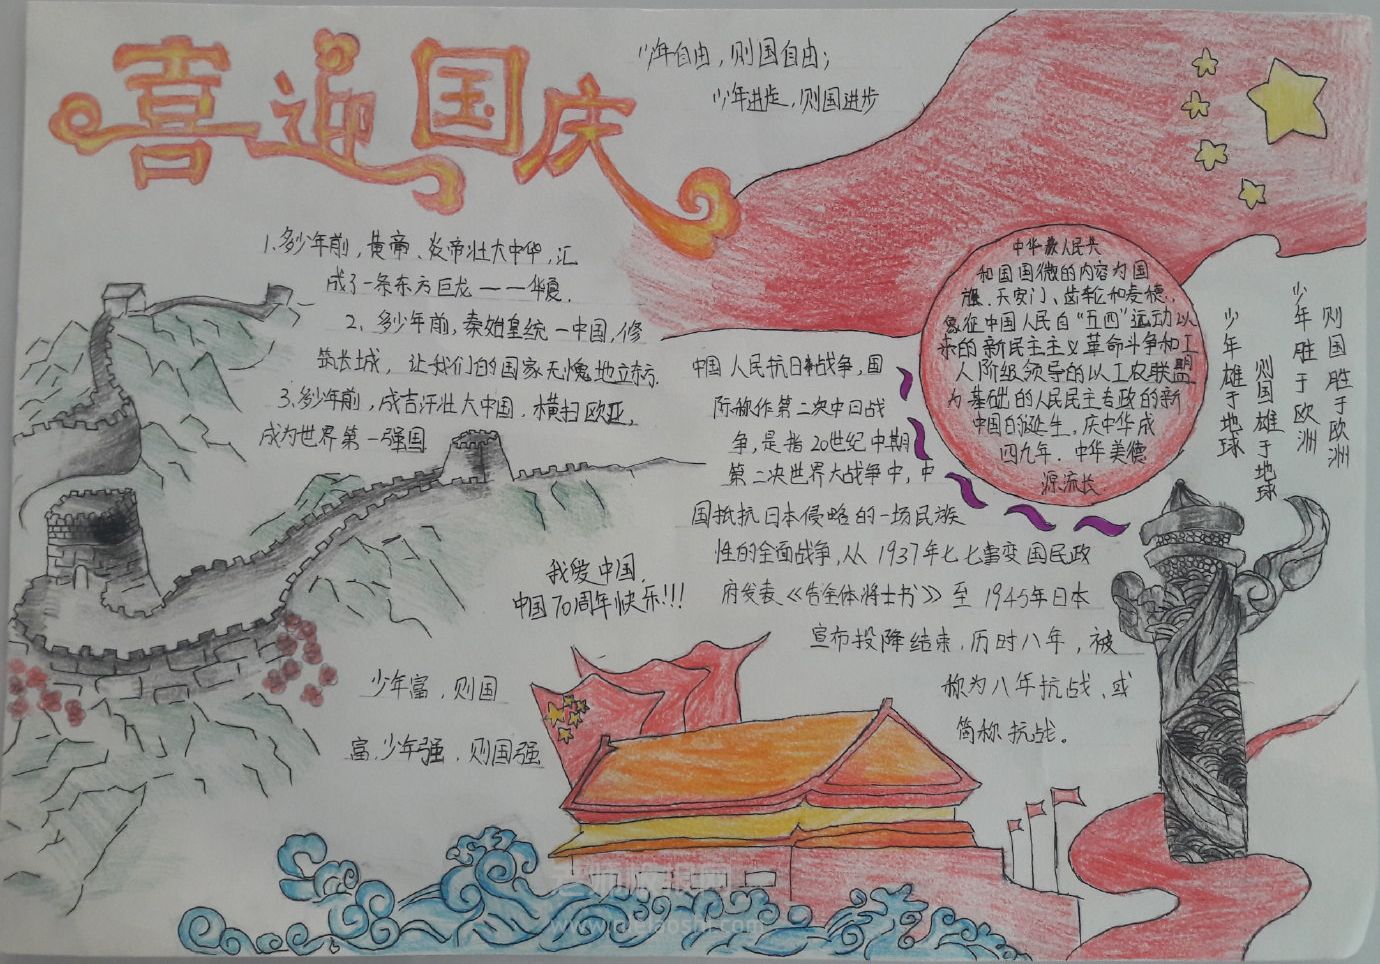 喜迎国庆
少年自由，则国自由；
少年进步，则国进步
1、多少年前，黄帝、炎帝壮大中华，汇
成了一条东方巨龙——华夏．
2、多少年前，秦始皇统一中国，修
筑长城，让我们的国家无愧地立东方．
3、多少年前，成吉汗壮大中国．横扫欧亚，
成为世界第一强国
中国人民抗日战争，国
际称作第二次中日战
争，是指20世纪中期
第二次世界大战争中，中
国抵抗日本侵略的一场民族
性的全面战争，从1937年七七事变国民政
府发表《告全体将士书》至1945年日本
宣布投降结束．历时八年，被
称为八年抗战、或
简称抗战。
中华人民共
和国国徽的内容为国
旗．天安门、齿轮和麦穗，
象征中国人民自“五四”运动以
来的新民主主义革命斗争和工
人阶级领导的以工农联盟
为基础的人民民主专政的新
中国的诞生．庆中华成
四九年．中华美德
源流长
则国胜于欧洲
少年胜于欧洲
则国雄于地球
少年雄于地球
我爱中国．
中国70周年快乐!!!
少年富，则国
富．少年强．则国强